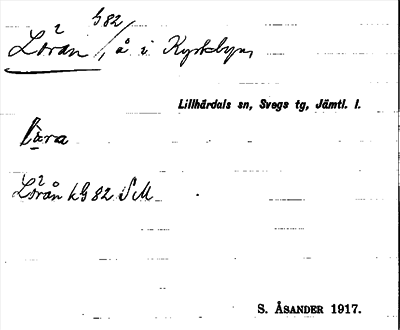 G82
Lörån, å i Kyrkbyn,
Lillhärdals sn, Svegs tg, Jämtl. l.
Lörån kG 82 SM
S. ÅSANDER 1917.